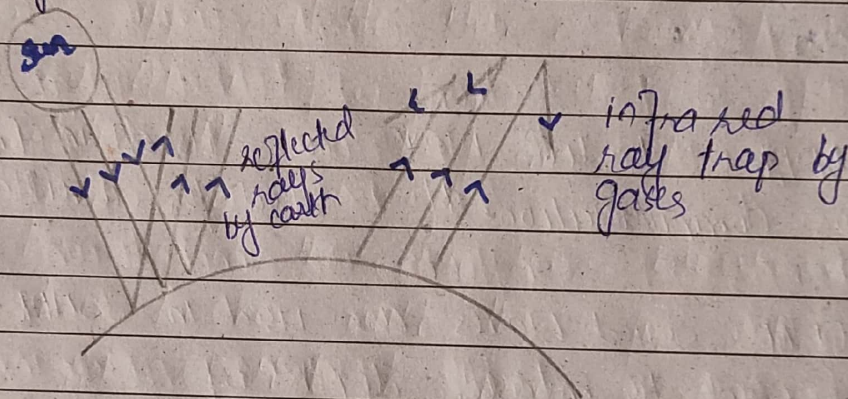 Sun
reflected
rays
by earth
infrared
ray trap by
gases